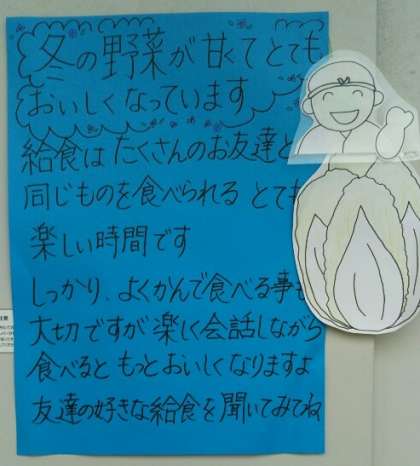 冬の野菜が甘くてとても
おいしくなっています
給食は たくさんのお友達と
同じものを食べられる とても
楽しい時間です
しっかり、よくかんで食べる事も
大切ですが楽しく会話しながら
食べると もっとおいしくなりますよ
友達の好きな給食を聞いてみてね